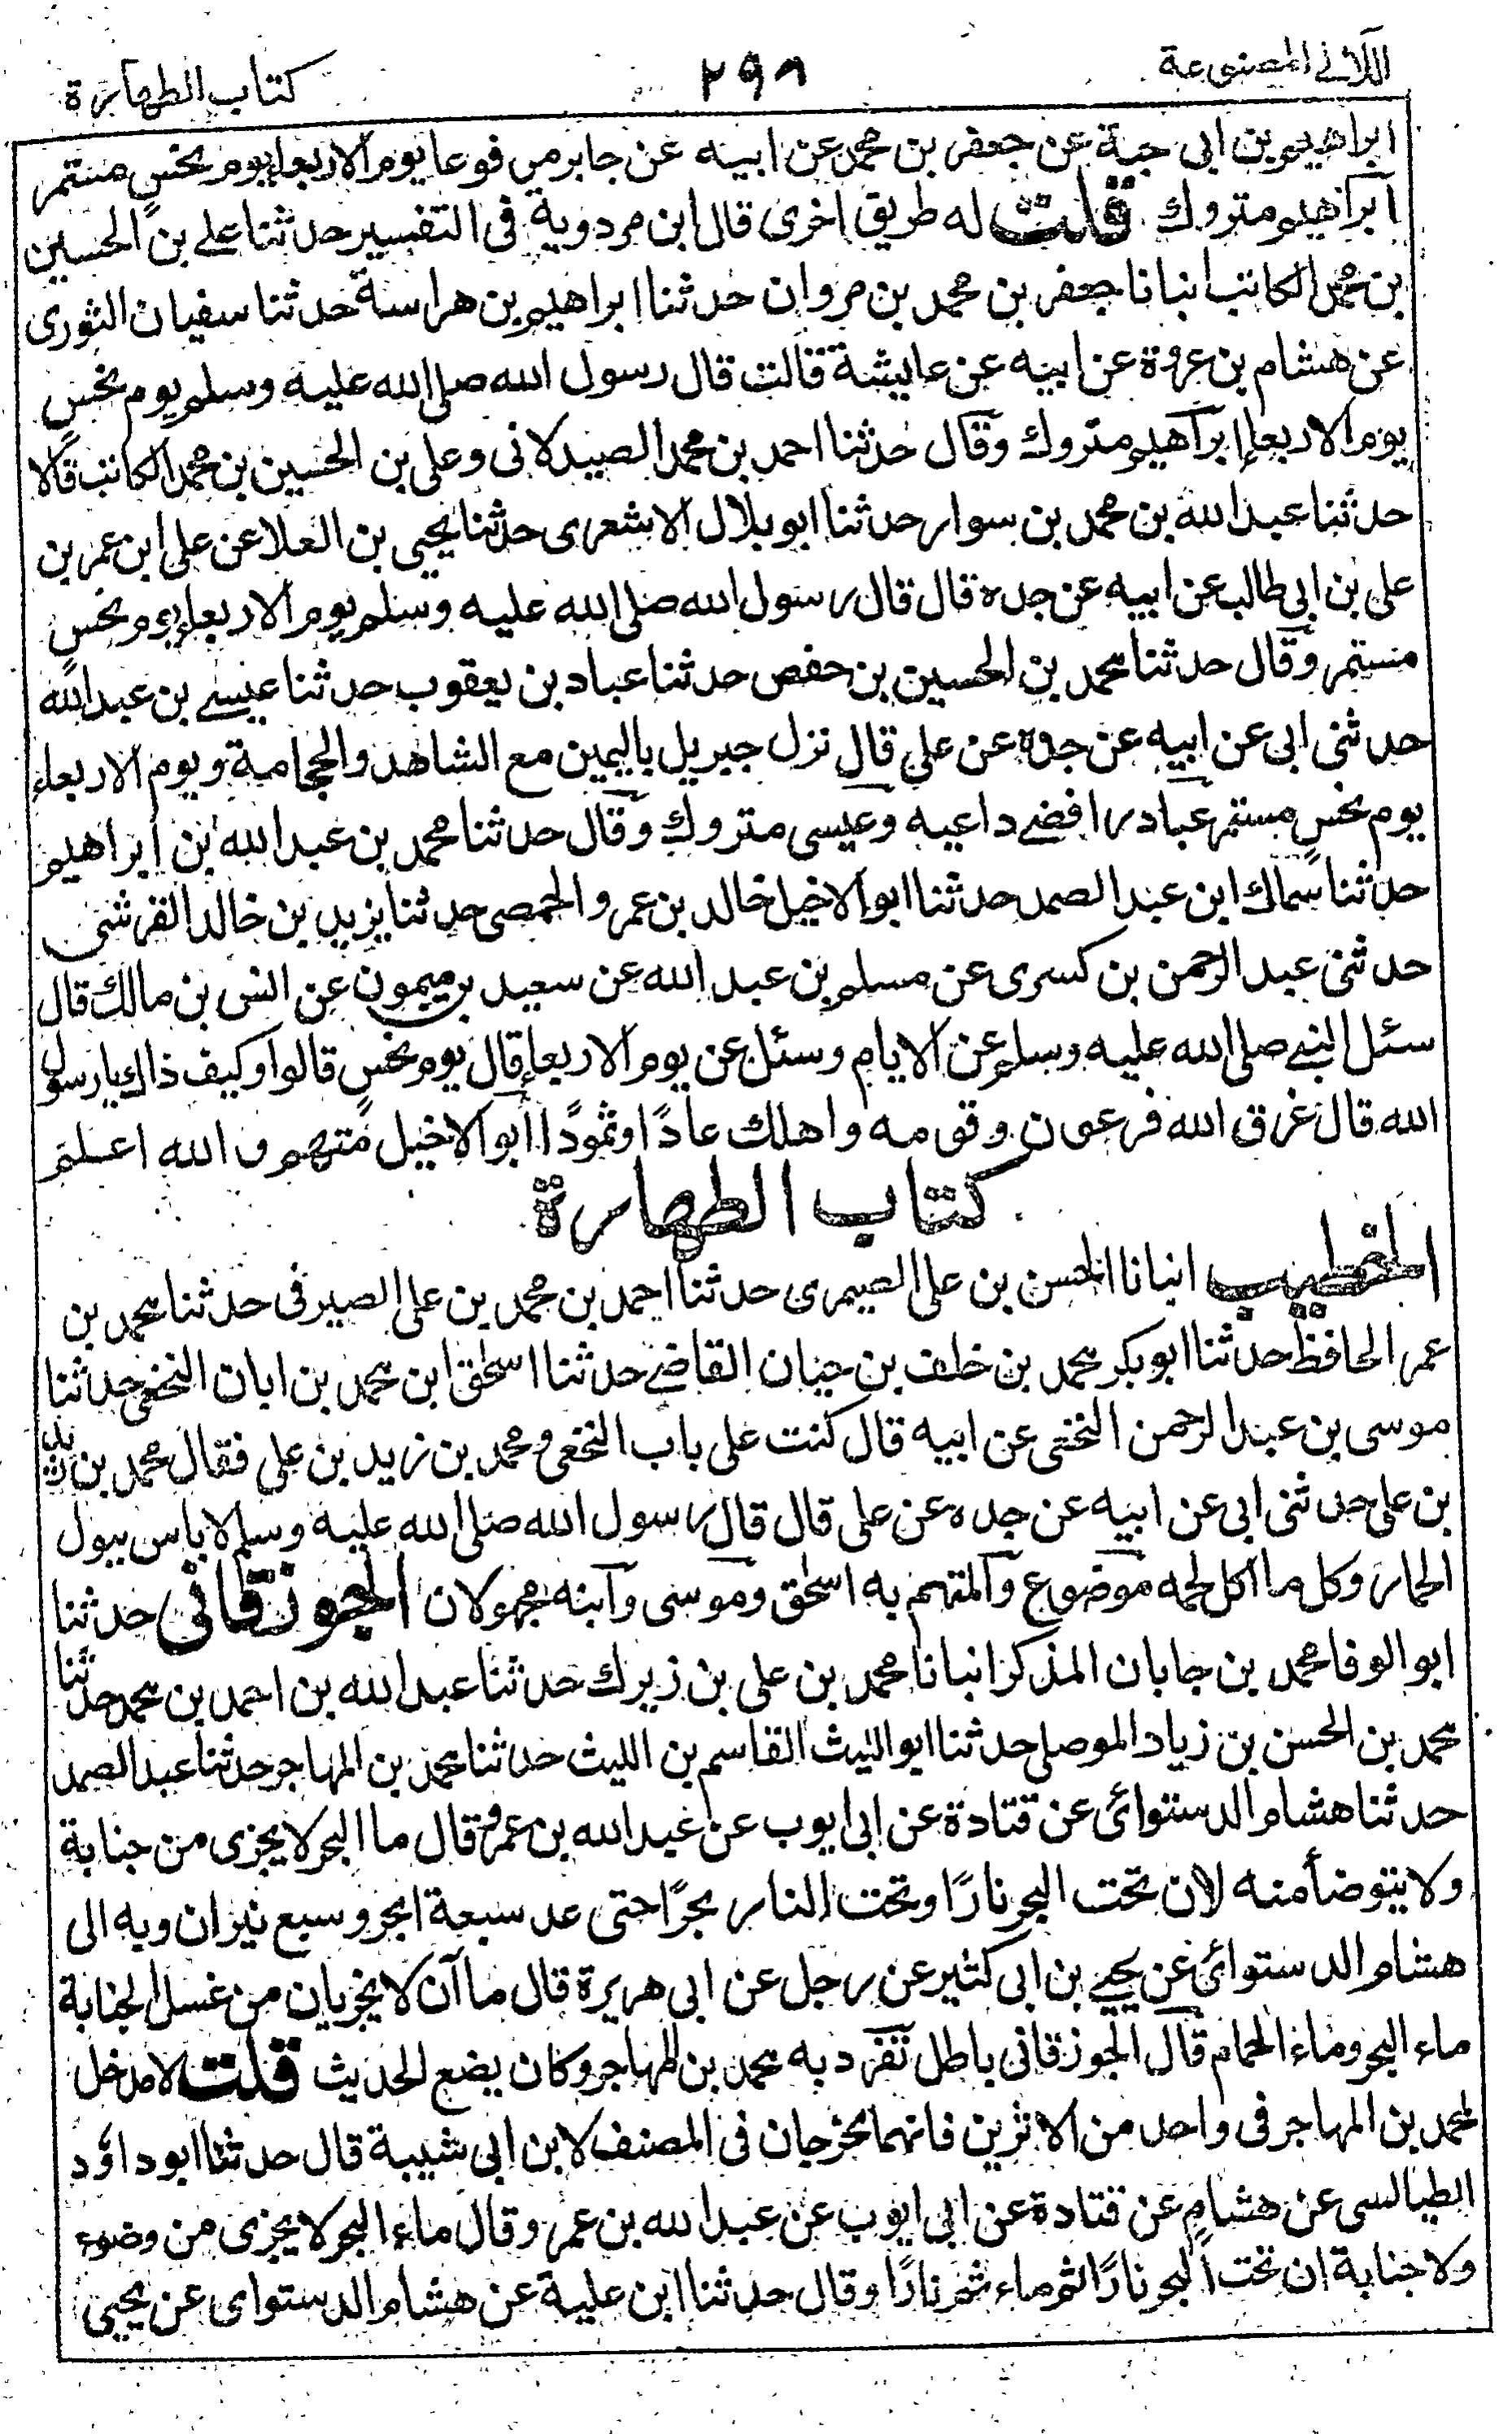 اللآلئ المصنوعة
٢٩٨
كتاب الطهارة
ابراهيم بن ابى حبة عن جعفر بن محمد عن ابيه عن جابر مرفوعا يوم الاربعاء يوم نحس مستمر
ابراهيم متروك قلت له طريق اخرى قال ابن مردوية فى التفسير حدثنا على بن الحسين
بن محمد الكاتب انبانا جعفر بن محمد بن مروان حدثنا ابراهيم بن هراسة حدثنا سفيان الثورى
عن هشام بن عروة عن ابيه عن عايشة قالت قال رسول الله صلى الله عليه وسلم يوم نحس
يوم الاربعاء ابراهيم متروك وقال حدثنا احمد بن محمد الصيدلانى وعلى بن الحسين بن محمد الكاتب قالا
حدثنا عبد الله بن محمد بن سوار حدثنا ابو بلال الاشعرى حدثنا يحيى بن العلا عن على ابن عمر بن
على بن ابى طالب عن ابيه عن جده قال قال رسول الله صلى الله عليه وسلم يوم الاربعاء يوم نحس
مستمر وقال حدثنا محمد بن الحسين بن حفص حدثنا عباد بن يعقوب حدثنا عيسى بن عبد الله
حدثنى ابى عن ابيه عن جده عن على قال نزل جبريل باليمين مع الشاهد والحجامة ويوم الاربعاء
يوم نحس مستمر عباد رافضى داعيه وعيسى متروك وقال حدثنا محمد بن عبد الله بن ابراهيم
حدثنا سماك ابن عبد الصمد حدثنا ابو الاخيل خالد بن عمرو الحمصى حدثنا يزيد بن خالد القرشى
حدثنى عبد الرحمن بن كسرى عن مسلم بن عبد الله عن سعيد بن ميمون عن انس بن مالك قال
سئل النبى صلى الله عليه وسلم عن الايام وسئل عن يوم الاربعاء قال يوم نحس قالوا وكيف ذاك يا رسول
الله قال غرق الله فرعون وقومه واهلك عادًا وثمودًا ابو الاخيل متهم والله اعلم
كتاب الطهارة
الخطيب انبانا الحسن بن على الصيمرى حدثنا احمد بن محمد بن على الصيرفى حدثنا محمد بن
عمر الحافظ حدثنا ابو بكر محمد بن خلف بن حيان القاضى حدثنا اسحق ابن محمد بن ابان النخعى حدثنا
موسى بن عبد الرحمن النخعى عن ابيه قال كنت على باب النخعى ومحمد بن زيد بن على فقال محمد بن زيد
بن على حدثنى ابى عن ابيه عن جده عن على قال قال رسول الله صلى الله عليه وسلم لا باس ببول
الحمار وكل ما اكل لحمه موضوع والمتهم به اسحق وموسى وابنه مجهولان الجوزقانى حدثنا
ابو الوفا محمد بن جابان المذكر انبانا محمد بن على بن زيرك حدثنا عبد الله بن احمد بن محمد حدثنا
محمد بن الحسن بن زياد الموصلى حدثنا ابو الليث القاسم بن الليث حدثنا محمد بن المهاجر حدثنا عبد الصمد
حدثنا هشام الدستوائى عن قتادة عن ابى ايوب عن عبد الله بن عمرو قال ما البحر لا يجزى من جنابة
ولا يتوضأ منه لان تحت البحر نارًا وتحت النار بحرًا حتى عد سبعة ابحر وسبع نيران وبه الى
هشام الدستوائى عن يحيى بن ابى كثير عن رجل عن ابى هريرة قال ما آن لا يجزيان من غسل الجنابة
ماء البحر وماء الحمام قال الجوزقانى باطل تفرد به محمد بن المهاجر وكان يضع الحديث قلت لا مدخل
لمحمد بن المهاجر فى واحد من الاثرين فانهما مخرجان فى المصنف لابن ابى شيبة قال حدثنا ابو داؤد
الطيالسى عن هشام عن قتادة عن ابى ايوب عن عبد الله بن عمر وقال ماء البحر لا يجزى من وضوء
ولا جنابة ان تحت البحر نارًا ثم ماء ثم نارًا وقال حدثنا ابن علية عن هشام الدستواى عن يحيى